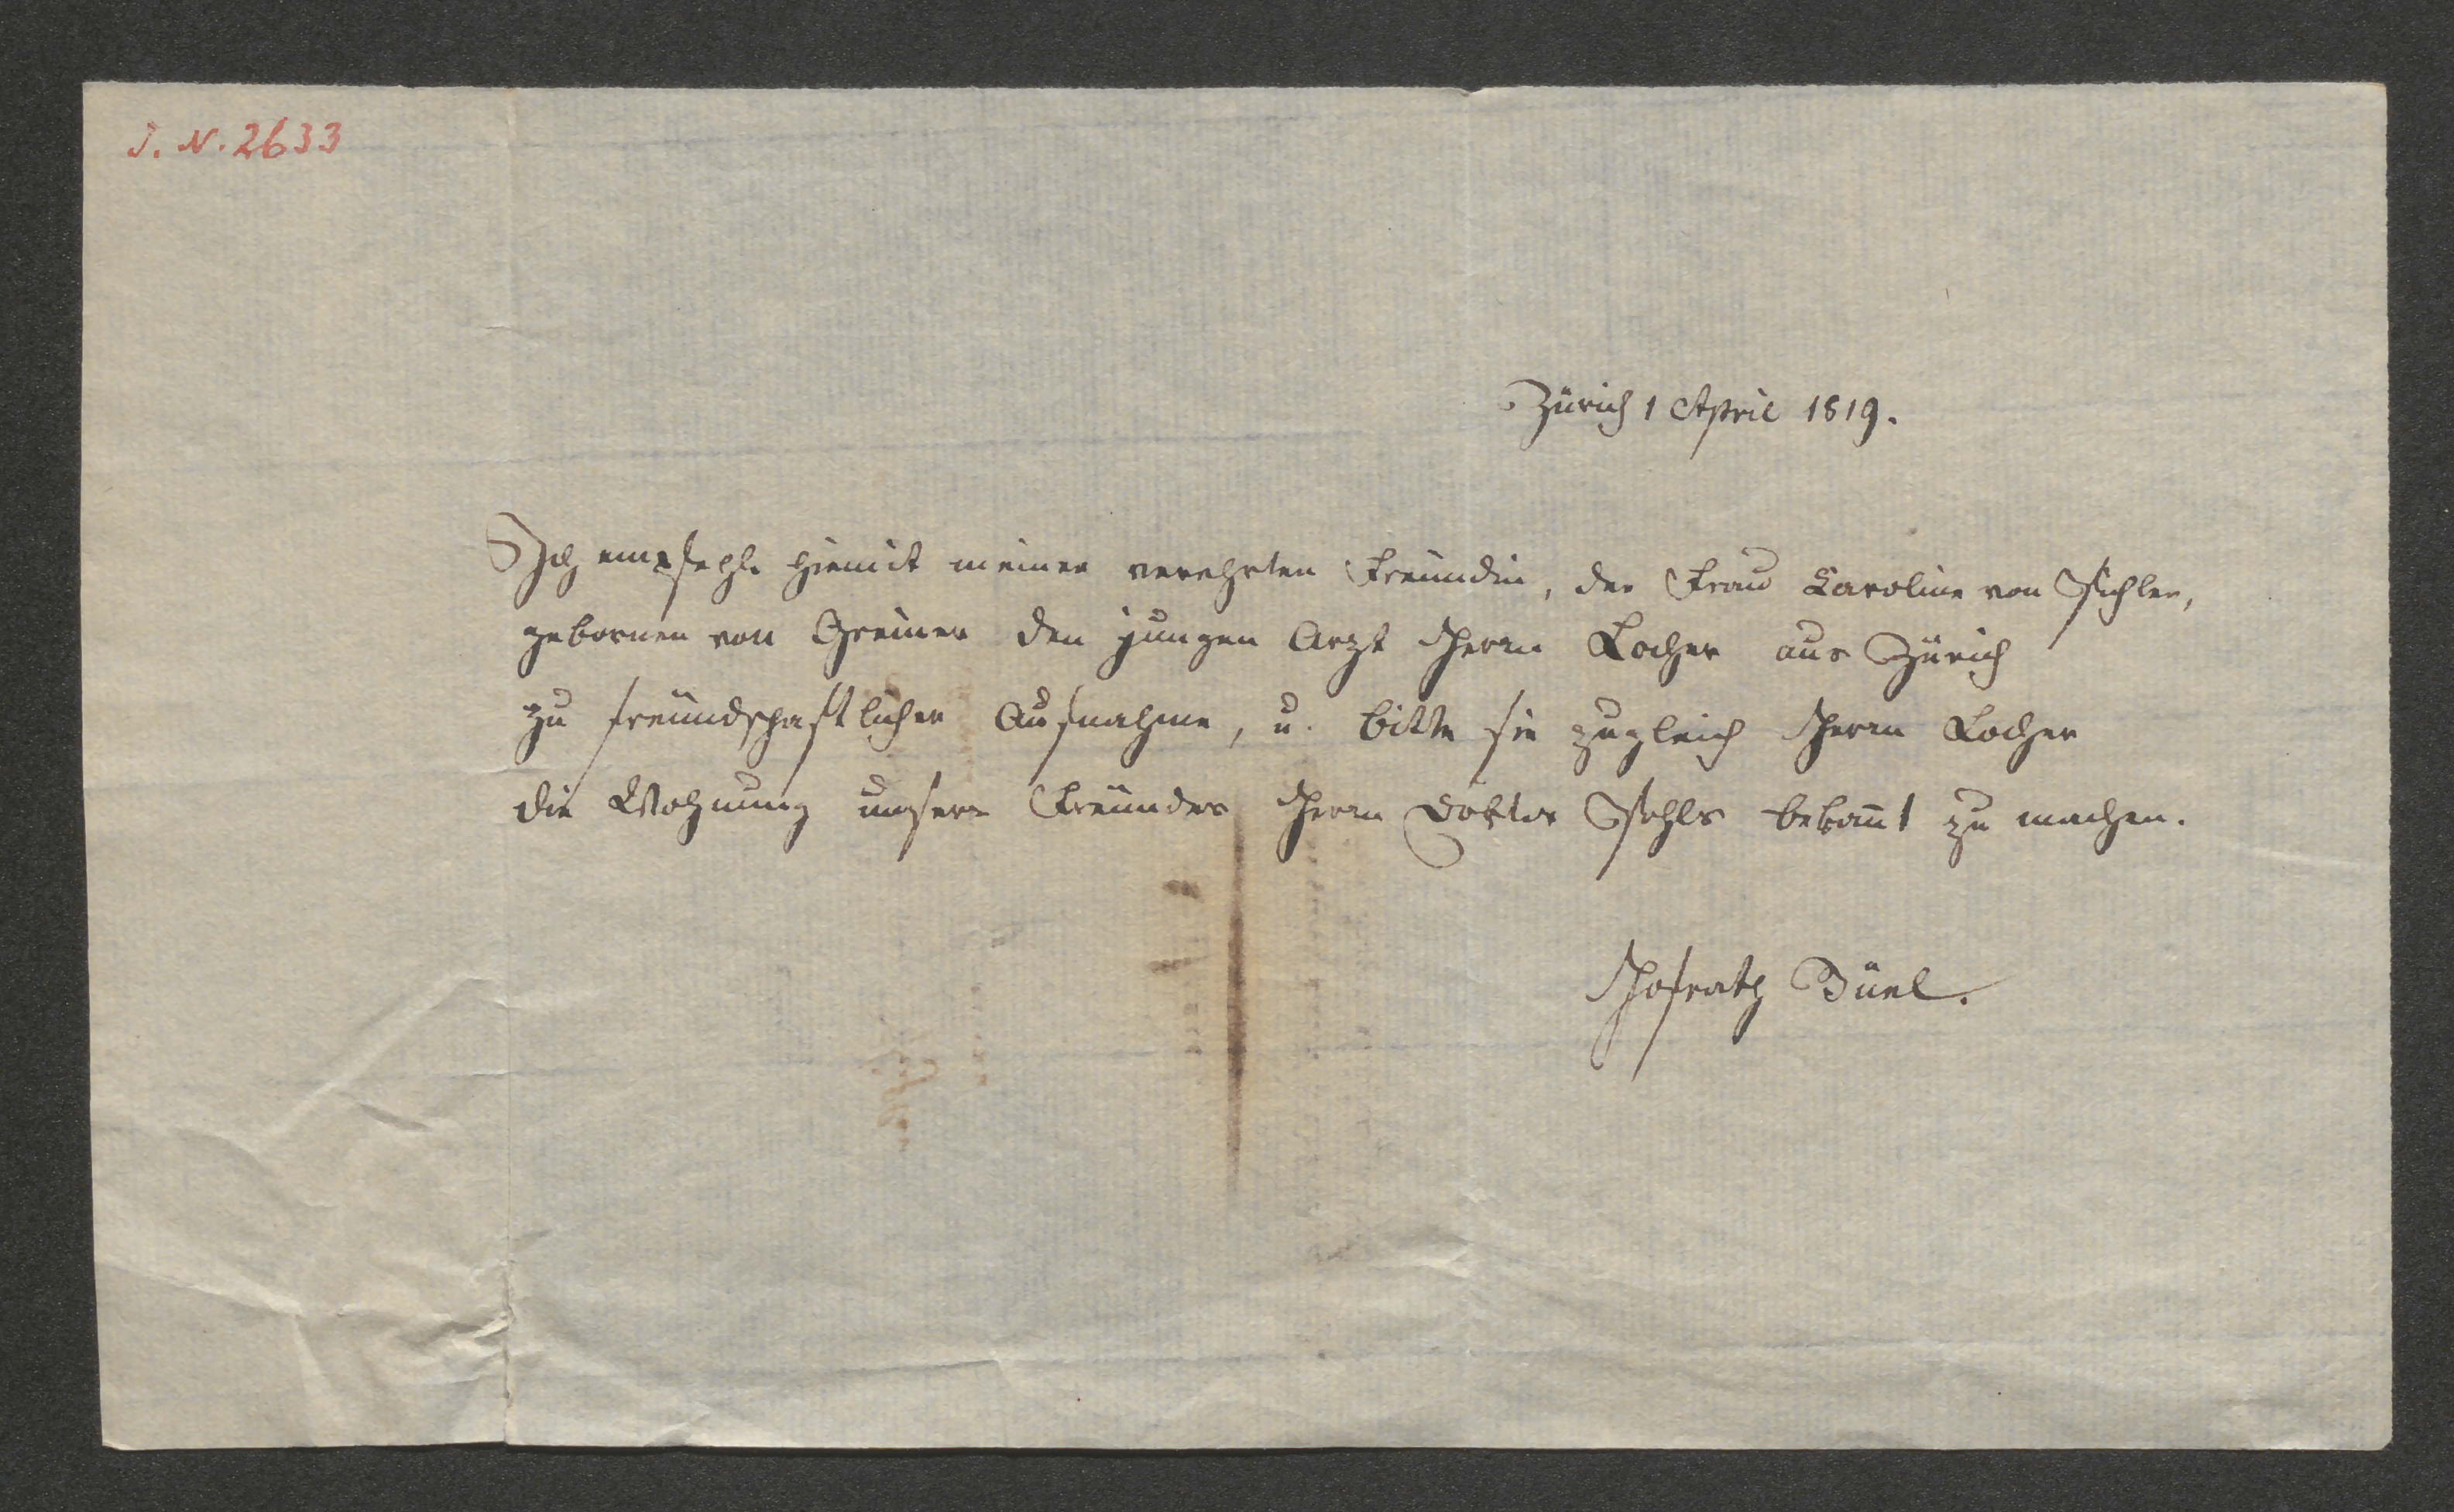 J. N. 2633
Zürich 1 April 1819.
Ich empfehle hiemit meiner verehrten Freundin, der Frau Caroline von Pichler,
gebornen von Greiner den jungen Arzt Herrn Locher aus Zürich
zu freundschaftlicher Aufnahme, u. bitte sie zugleich Herrn Locher
die Wohnung unsers Freundes Herrn Doktor bekannt zu machen.
Hofrath Büel.